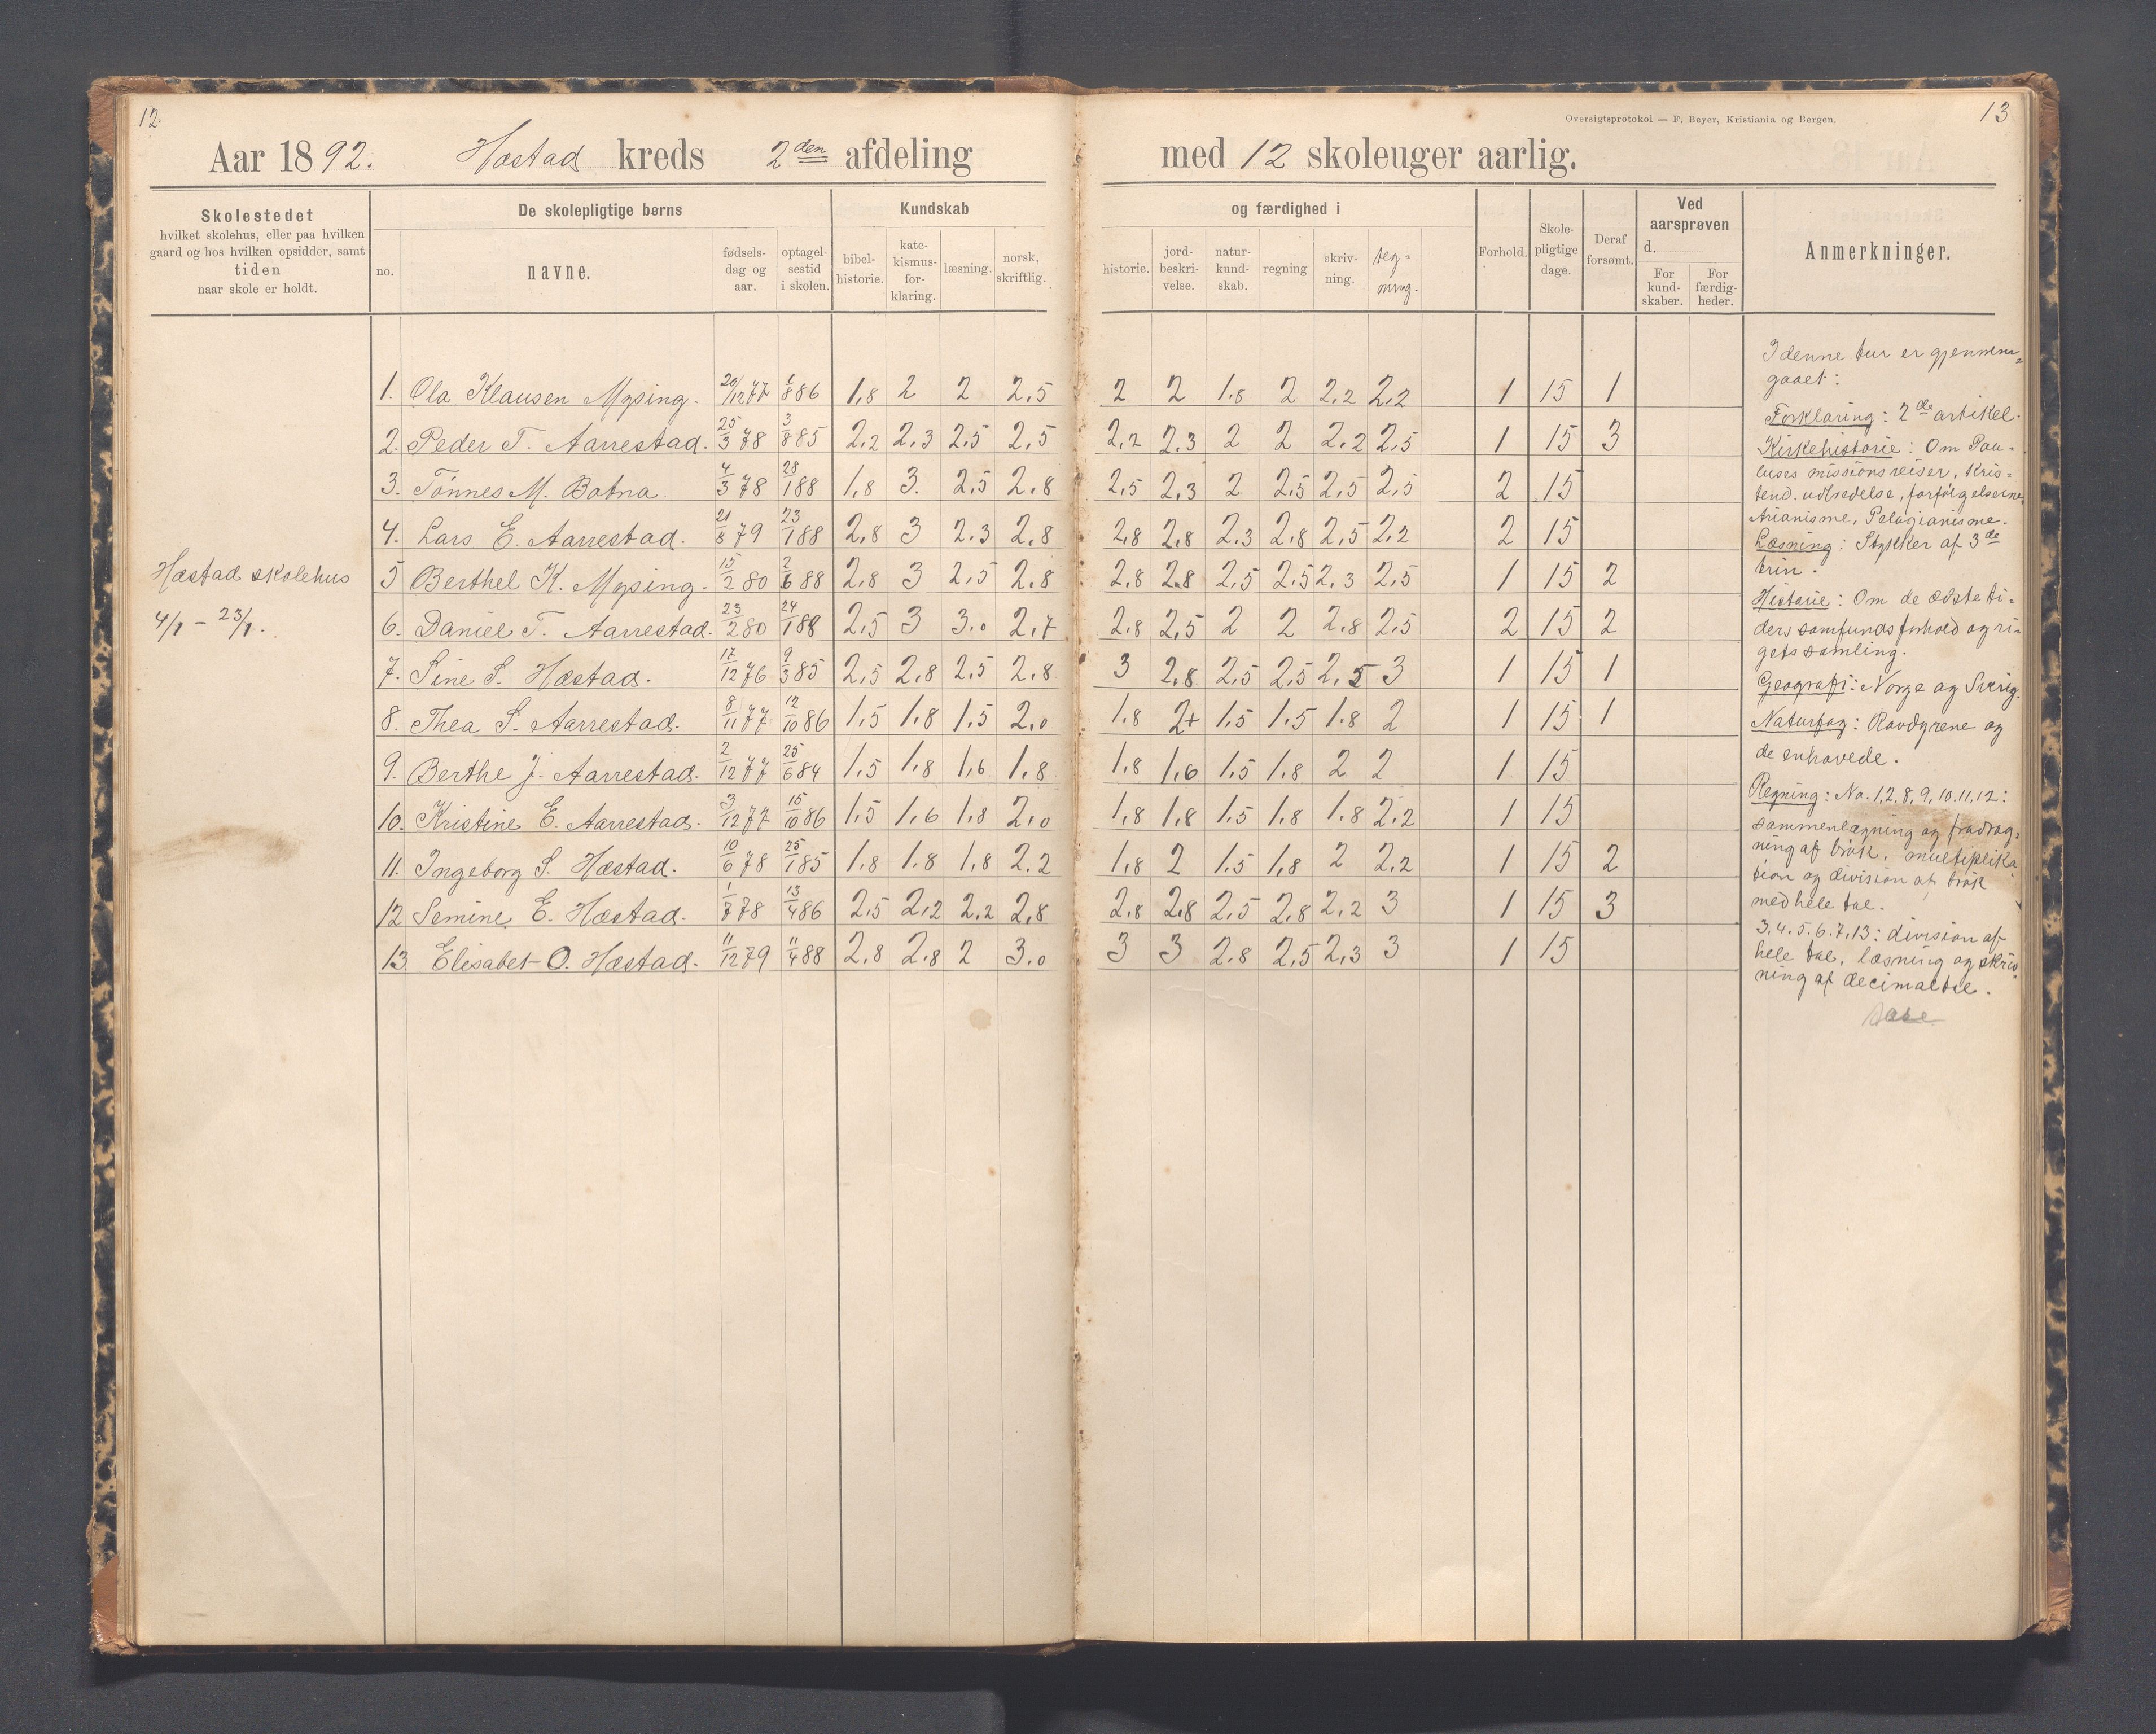 12.
Aar 1892. Hæstad kreds 2den afdeling
Skolestedet
hvilket skolehus, eller paa hvilken
gaard og hos hvilken opsidder, samt
tiden
naar skole er holdt.
De skolepligtige børns
no.
navne.
fødsels-
dag og
aar.
optagel-
sestid
i skolen.
Kundskab
bibel-
historie.
kate-
kismus-
for-
klaring.
læsning.
norsk,
skriftlig.
Hæstad skolehus
4/1 – 23/1.
1. Ola Klausen Mysing. 20/12 77 1/8 86 1,8 2 2 2,5
2. Peder T. Aarrestad. 25/3 78 3/8 85 2,2 2,3 2,5 2,5
3. Tönnes M. Botna. 4/3 78 28/1 88 1,8 3. 2,5 2,8
4. Lars E. Aarrestad. 21/8 79 23/1 88 2,8 3 2.3 2,8
5 Berthel K. Mysing. 15/2 80 2/6 88 2,8 3 2,5 2,8
6. Daniel T. Aarrestad. 23/2 80 24/1 88 2,5 3 3.0 2,7
7. Sine S. Hæstad. 17/12 76 9/3 85 2,5 2,8 2,5 2,8
8. Thea S. Aarrestad. 8/11 77 12/10 86 1,5 1,8 1,5 2,0
9. Berthe J. Aarrestad. 2/12 77 25/6 84 1,5 1,8 1,6 1,8
10. Kristine E. Aarrestad. 3/12 77 15/10 86 1,5 1,6 1,8 2,0
11. Ingeborg S. Hæstad. 10/6 78 25/1 85 1,8 1,8 1,8 2.2
12 Semine E. Hæstad. 1/7 78 13/4 86 2,5 2,2 2,2 2,8
13. Elisabet O. Hæstad. 11/12 79 11/4 88 2,8 2,8 2 3.0
Oversigtsprotokol — F. Beyer, Kristiania og Bergen.
13
med 12 skoleuger aarlig.
og færdighed i
historie.
jord-
beskri-
velse.
natur-
kund-
skab.
regning
skriv-
ning.
teg-
ning.
Forhold.
Skole-
pligtige
dage.
Deraf
forsømt.
Ved
aarsprøven
d.
For
kund-
skaber.
For
færdig-
heder.
Anmerkninger.
2 2 1,8 2 2,2 2,2 1 15 1
2,2 2,3 2 2 2,2 2,5 1 15 3
2,5 2,3 2 2,5 2,5 2,5 2 15
2,8 2,8 2,3 2,8 2,5 2,2 2 15
2,8 2,8 2,5 2,5 2,3 2,5 1 15 2
2,8 2,5 2 2 2,8 2,5 2 15 2
3 2,8 2,5 2,5 2,5 3 1 15 1
1,8 2+ 1,5 1,5 1,8 2 1 15 1
1,8 1,6 1,5 1,8 2 2 1 15
1,8 1,8 1,5 1,8 1,8 2,2 1 15
1,8 2 1,5 1,8 2 2,2 1 15 2
2,8 2,8 2,5 2,8 2,2 3 1 15 3
3 3 2,8 2,5 2,3 3 1 15
I denne tur er gjennem-
gaaet:
Forklaring: 2de artikel.
Kirkehistorie: Om Pau-
luses missionsreiser, kris-
tend. udbredelse, forfölgelserne,
Arianisme, Pelagianisme.
Læsning: Stykker af 3de
trin.
Historie: Om de ældste ti-
ders samfundsforhold og ri-
gets samling.
Geografi: Norge og Sverig.
Naturfag: Rovdyrene og
de enhovede.
Regning: No. 1,2,8,9,10.11,12:
sammenlægning og fradrag-
ning af brök, multiplika-
tion og division af brök
med hele tal.
3.4.5.6.7.13: division af
hele tal, læsning og skriv-
ning af decimaltal.